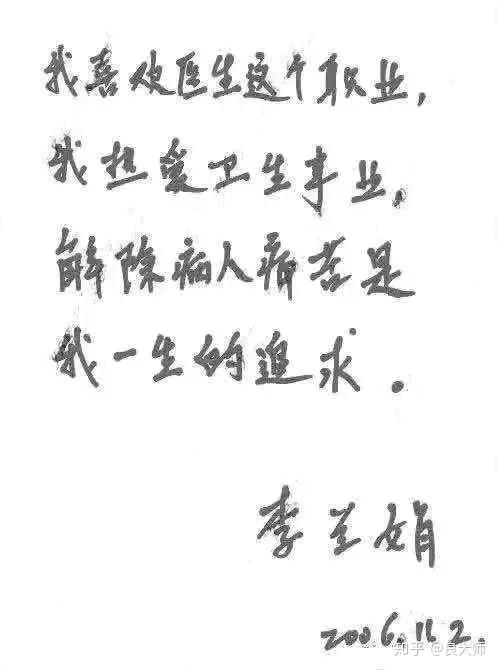 我喜欢医生这个职业，
我热爱卫生事业，
解除病人痛苦是
我一生的追求．
李兰娟
2006.11.2.
知乎 @良大师